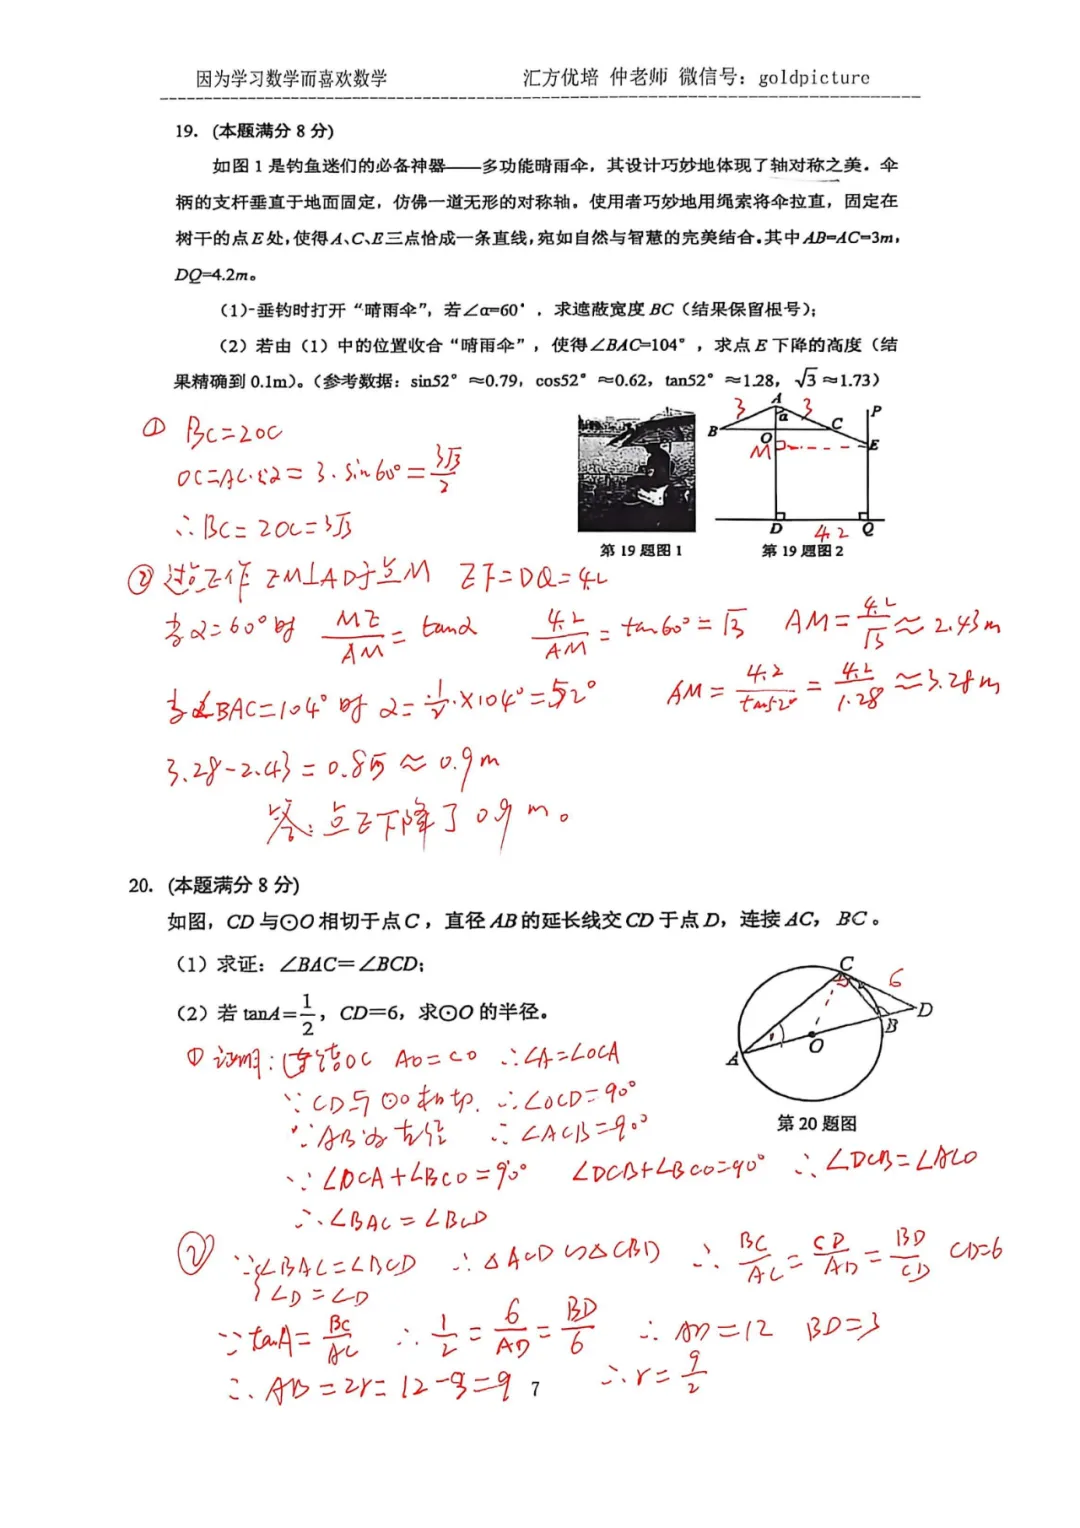 因为学习数学而喜欢数学 汇方优培 仲老师 微信号：goldpicture
19. (本题满分 8 分)
如图 1 是钓鱼迷们的必备神器——多功能晴雨伞，其设计巧妙地体现了轴对称之美．伞
柄的支杆垂直于地面固定，仿佛一道无形的对称轴．使用者巧妙地用绳索将伞拉直，固定在
树干的点 E 处，使得 A、C、E 三点恰成一条直线，宛如自然与智慧的完美结合．其中 AB=AC=3m，
DQ=4.2m。
（1）-垂钓时打开“晴雨伞”，若∠α=60°．求遮蔽宽度 BC（结果保留根号）；
（2）若由（1）中的位置收合“晴雨伞”，使得∠BAC=104°，求点 E 下降的高度（结
果精确到 0.1m）。（参考数据：sin52°≈0.79，cos52°≈0.62，tan52°≈1.28，√3≈1.73）
① BC=2OC
OC=AC·sinα=3·sin60°=3√3/2
∴BC=2OC=3√3
A
3 3
α
P
B
C
O
M
E
D 4.2 Q
第 19 题图 1 第 19 题图 2
② 过点E作 EM⊥AD于点M EF=DQ=4.2
当α=60°时 ME/AM=tanα 4.2/AM=tan60°=√3 AM=4.2/√3≈2.43m
当∠BAC=104°时 α=1/2×104°=52° AM=4.2/tan52°=4.2/1.28≈3.28m
3.28-2.43=0.85≈0.9m
答：点E下降了0.9m。
20. (本题满分 8 分)
如图，CD 与⊙O 相切于点 C，直径 AB 的延长线交 CD 于点 D，连接 AC，BC。
（1）求证：∠BAC=∠BCD；
（2）若 tanA=1/2，CD=6，求⊙O 的半径。
C
6
D
B
O
A
第 20 题图
① 证明：连结OC AO=CO ∴∠A=∠OCA
∵CD与⊙O相切. ∴∠OCD=90°
∵AB为直径 ∴∠ACB=90°
∵∠OCA+∠BCO=90° ∠DCB+∠BCO=90° ∴∠DCB=∠ACO
∴∠BAC=∠BCD
② ∵{∠BAC=∠BCD ∴△ACD∽△CBD ∴BC/AC=CD/AD=BD/CD CD=6
∠D=∠D
∵tanA=BC/AC ∴1/2=6/AD=BD/6 ∴AD=12 BD=3
∴AB=2r=12-3=9 ∴r=9/2
7